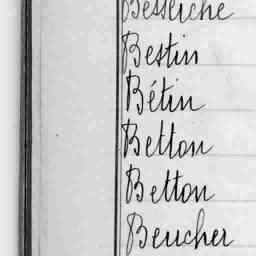 Besseiche
Bestin
Bétin
Betton
Betton
Beucher